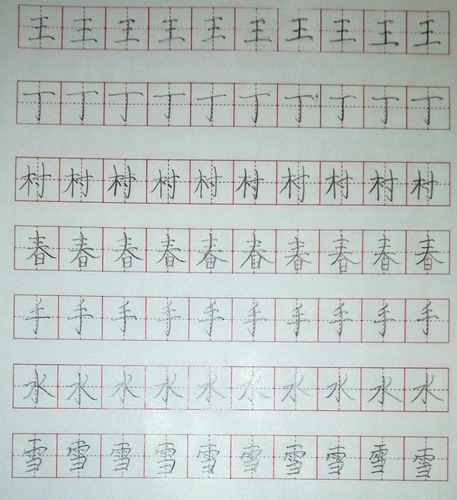 王王王王王王王王王王
丁丁丁丁丁丁丁丁丁丁
村村村村村村村村村村
春春春春春春春春春春
手手手手手手手手手手
水水水水水水水水水水
雪雪雪雪雪雪雪雪雪雪